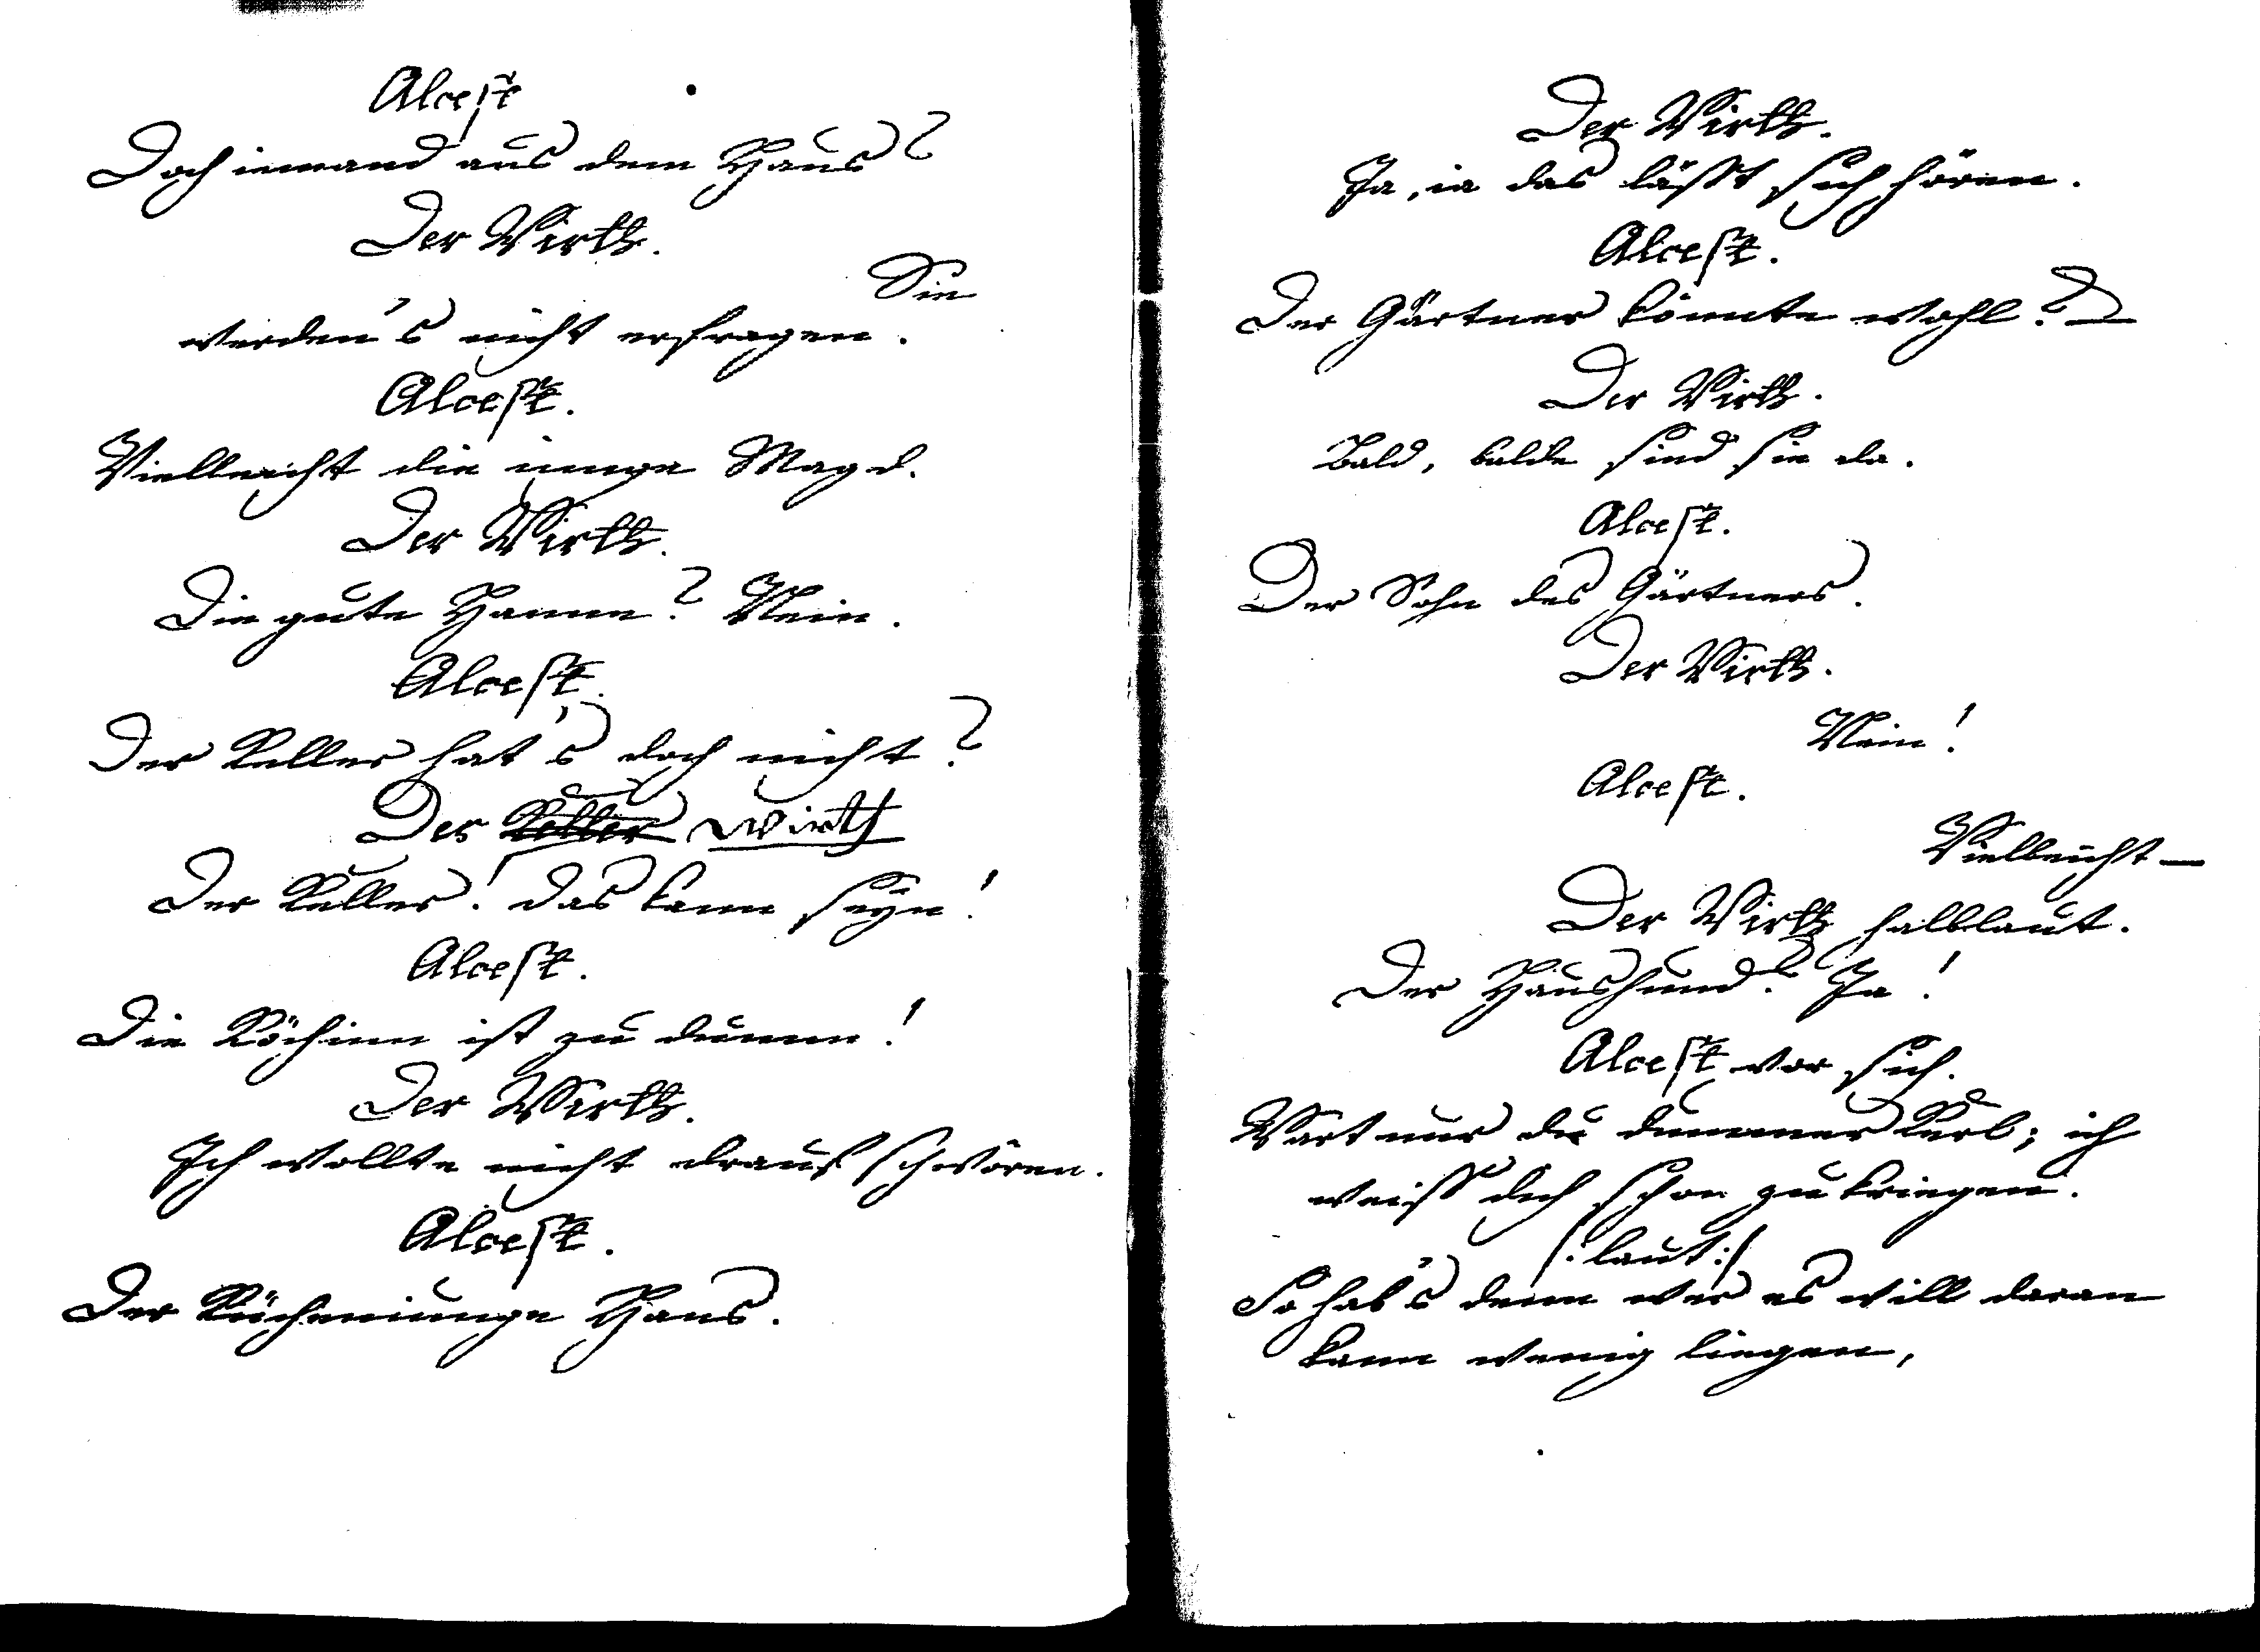 Alcest
Doch iemand aus dem Haus?
Der Wirth.
Sie
werden's nicht erfragen.
Alcest.
Vielleicht die iunge Magd.
Der Wirth.
Die gute Hanne? Nein.
Alcest.
Der Keller hat's doch nicht?
Der Keller Wirth
Der Keller! das kann seyn!
Alcest.
Die Köchinn ist zu dumm!
Der Wirth.
Ich wollte nicht drauf schwören.
Alcest.
Der Kücheniunge Hans.
Der Wirth.
Ja, ia das lässt sich hören.
Alcest.
Der Gärtner könnte wohl? —
Der Wirth.
Bald, balde sind sie da.
Alcest.
Der Sohn des Gärtners.
Der Wirth.
Nein!
Alcest.
Vielleicht —
Der Wirth halblaut.
Der Haushund? Ja!
Alcest vor sich.
Wart nur du dummer Kerl; ich
weiss dich schon zu kriegen.
/: laut :/
So hab's denn wer es will daran
kann wenig liegen,